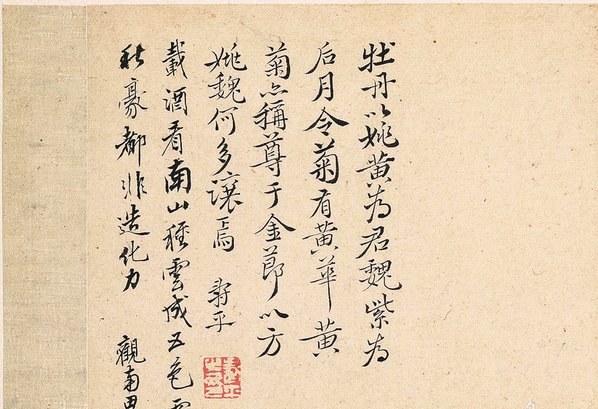 牡丹以姚黃為君魏紫為
后月令菊有黃華黃
菊亦稱尊于金節以方
姚魏何多讓焉 壽平
載酒看南山種雲成五色
秋豪都非造化力 觀南田